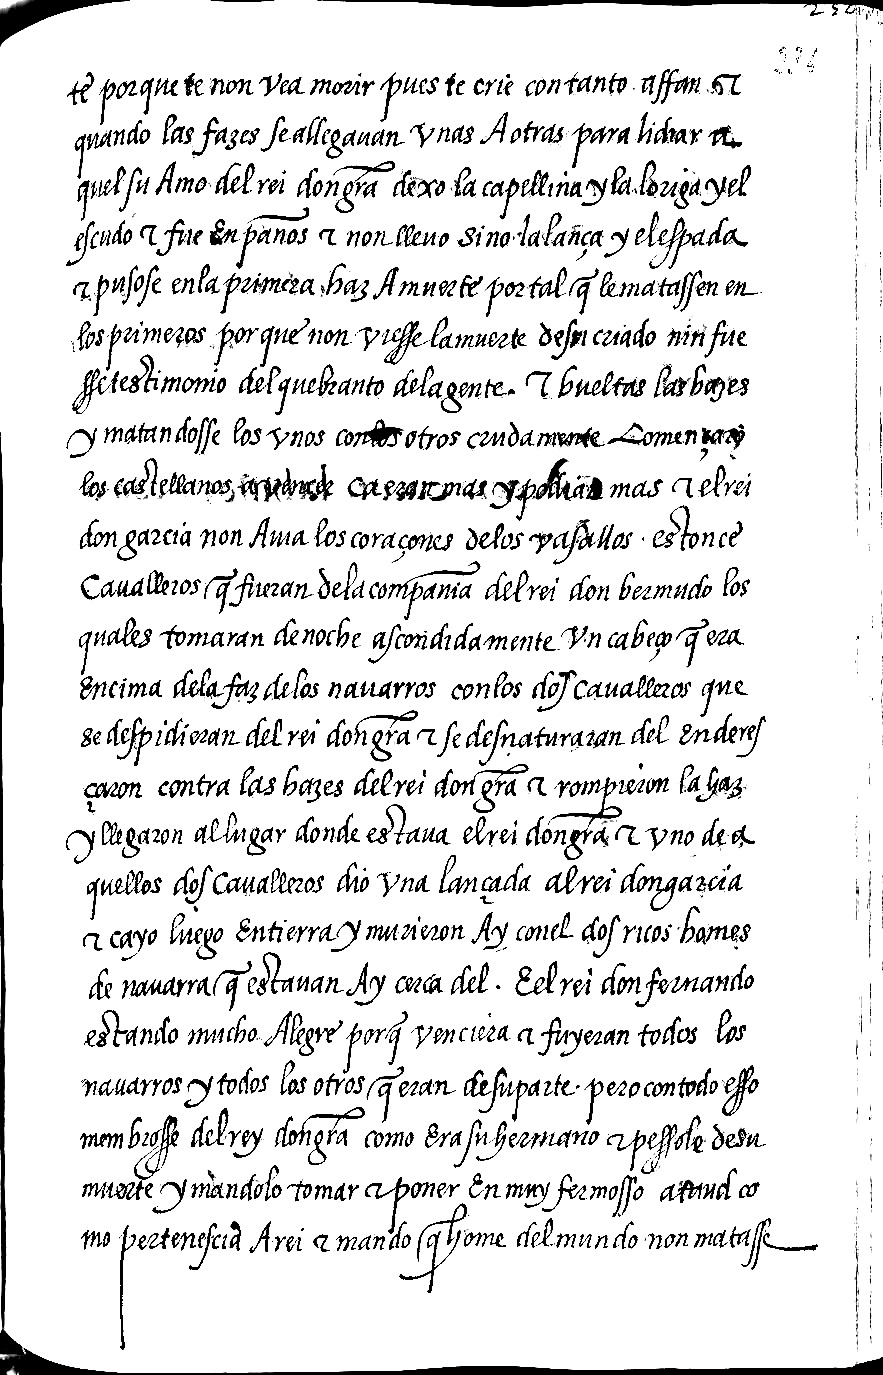 236
te porque te non vea morir pues te crie con tanto affan Et
quando las fazes se allegauan vnas A otras para lidiar a
quel su Amo del rei don gra dexo la capellina y la loriga y el
escudo τ fue En paños τ non lleuo sino la lança y el espada
τ pusose en la primera haz A muerte por tal q̃ le matassen en
los primeros por que non viesse la muerte de su criado nin fue
sse testimonio del quebranto de la gente. τ bueltas las hazes
y matandosse los vnos con los otros crudamente Començarõ
los castellanos a vencer Ca eran mas y podian mas τ el rei
don garcia non Auia los coraçones de los vasallos. estonce
Caualleros q̃ fueran de la compañia del rei don bermudo los
quales tomaran de noche ascondidamente Vn cabeço q̃ era
Encima de la faz de los nauarros con los dos Caualleros que
se despidieran del rei don gra τ se desnaturaran del Enderes
çaron contra las hazes del rei don gra τ rompieron la haz
y llegaron al lugar donde estaua el rei don gra τ vno de a
quellos dos Caualleros dio vna lançada al rei don garcia
τ cayo luego En tierra y murieron Ay con el dos ricos homes
de nauarra q̃ estauan Ay cerca del. E el rei don fernando
estando mucho Alegre porq̃ venciera τ fuyeran todos los
nauarros y todos los otros q̃ eran de su parte. pero con todo esso
membrosse del rey don gra como Era su hermano τ pessole de su
muerte y mandolo tomar τ poner En muy fermosso attaud co
mo pertenescia A rei τ mando q̃ home del mundo non matasse